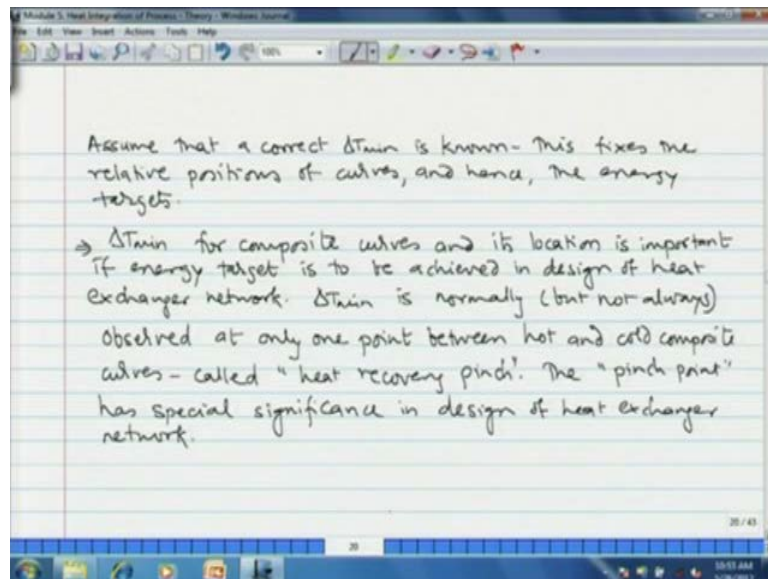 Module 5. Heat Integration of Process - Theory - Windows Journal
File Edit View Insert Actions Tools Help
100%
Assume that a correct ΔTmin is known - This fixes the
relative positions of curves, and hence, the energy
targets.
⇒ ΔTmin for composite curves and its location is important
if energy target is to be achieved in design of heat
exchanger network. ΔTmin is normally (but not always)
observed at only one point between hot and cold composite
curves - called "heat recovery pinch'. The "pinch point"
has special significance in design of heat exchanger
network.
20 / 43
20
10:55 AM